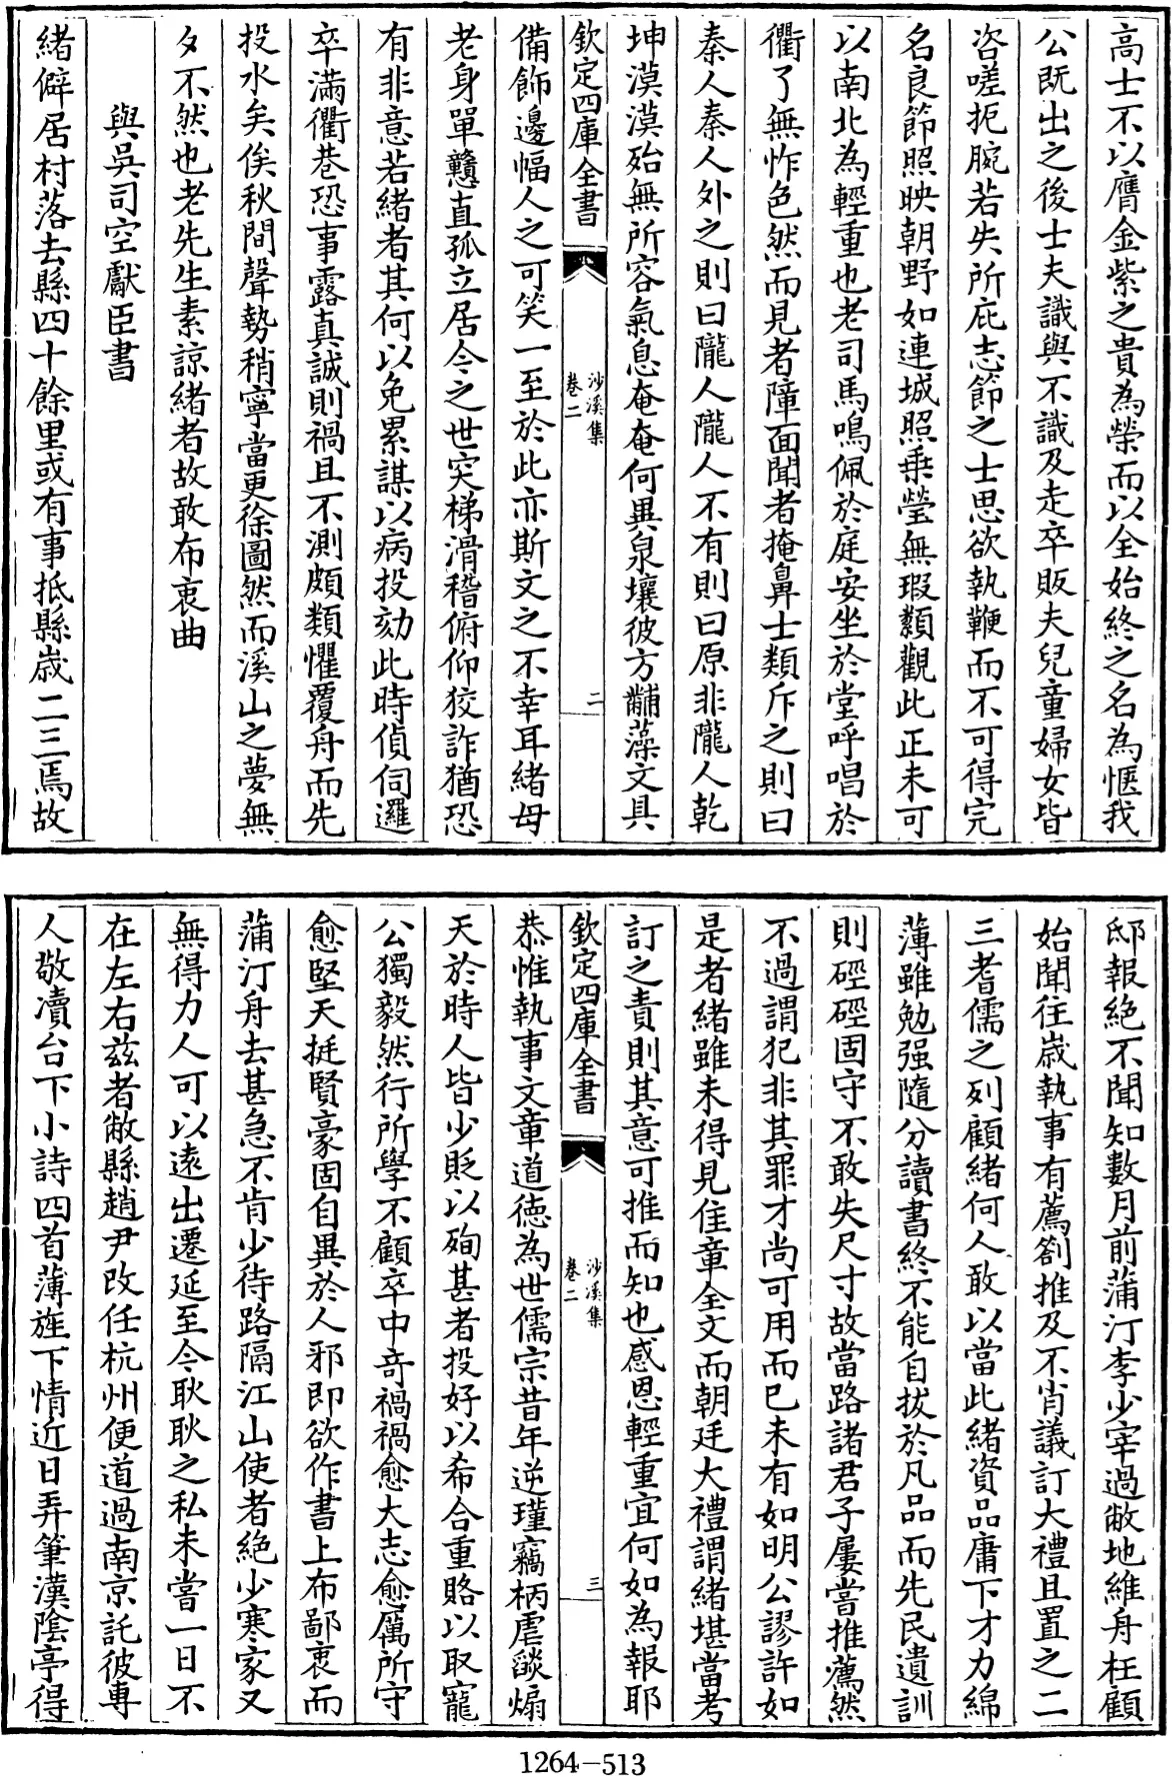 高士不以膺金紫之貴為榮而以全始終之名為愜我
公既出之後士夫識與不識及走卒販夫兒童婦女皆
咨嗟扼腕若失所庇志節之士思欲執鞭而不可得完
名良節照映朝野如連城照乘瑩無瑕纇觀此正未可
以南北為輕重也老司馬鳴佩於庭安坐於堂呼唱於
衢了無怍色然而見者障面聞者掩鼻士類斥之則曰
秦人秦人外之則曰隴人隴人不有則曰原非隴人乾
坤漠漠殆無所容氣息奄奄何異泉壤彼方黼藻文具
欽定四庫全書
沙溪集
卷二
二
備飾邊幅人之可笑一至於此亦斯文之不幸耳緒母
老身單戇直孤立居今之世突梯滑稽俯仰狡詐猶恐
有非意若緒者其何以免累謀以病投劾此時偵伺邏
卒滿衢巷恐事露真誠則禍且不測頗類懼覆舟而先
投水矣俟秋間聲勢稍寧當更徐圖然而溪山之夢無
夕不然也老先生素諒緒者故敢布衷曲
與吳司空獻臣書
緒僻居村落去縣四十餘里或有事抵縣歲二三焉故
邸報絕不聞知數月前蒲汀李少宰過敝地維舟枉顧
始聞往歲執事有薦劄推及不肖議訂大禮且置之二
三耆儒之列顧緒何人敢以當此緒資品庸下才力綿
薄雖勉强隨分讀書終不能自拔於凡品而先民遺訓
則硜硜固守不敢失尺寸故當路諸君子屢嘗推薦然
不過謂犯非其罪才尚可用而已未有如明公謬許如
是者緒雖未得見佳章全文而朝廷大禮謂緒堪當考
訂之責則其意可推而知也感恩輕重宜何如為報耶
欽定四庫全書
沙溪集
卷二
三
恭惟執事文章道德為世儒宗昔年逆瑾竊柄虐燄煽
天於時人皆少貶以殉甚者投好以希合重賂以取寵
公獨毅然行所學不顧卒中奇禍禍愈大志愈厲所守
愈堅天挺賢豪固自異於人邪即欲作書上布鄙衷而
蒲汀舟去甚急不肯少待路隔江山使者絕少寒家又
無得力人可以遠出遷延至今耿耿之私未嘗一日不
在左右兹者敝縣趙尹改任杭州便道過南京託彼專
人敬瀆台下小詩四首薄旌下情近日弄筆漢陰亭得
1264-513